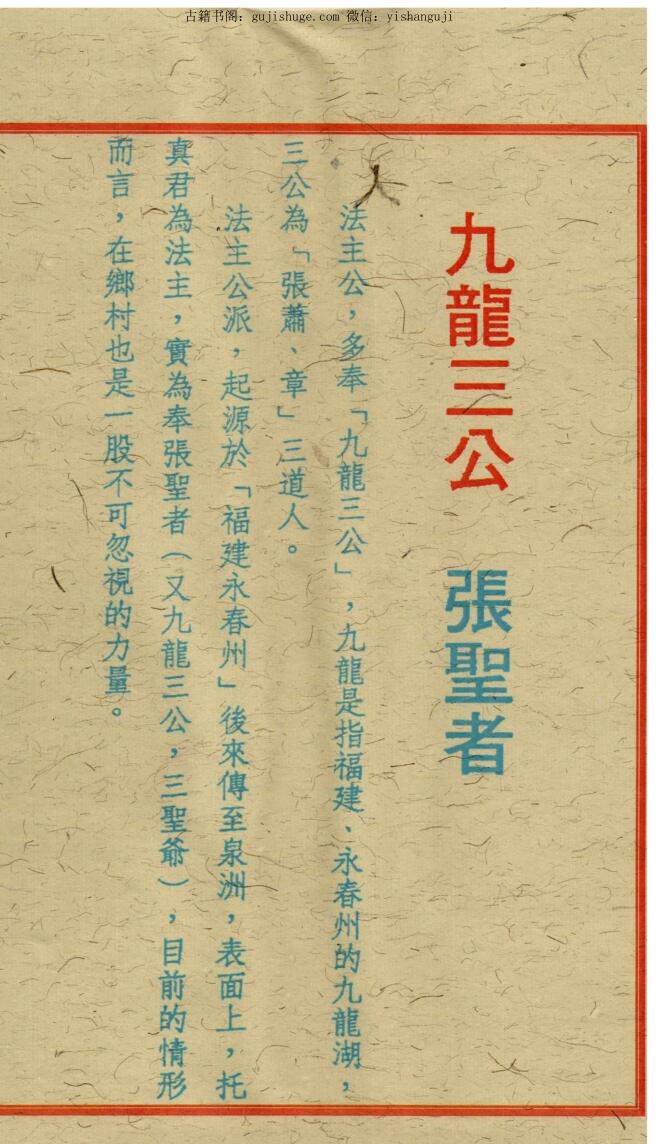 古籍书阁：gujishuge.com 微信：yishanguji
九龍三公 張聖者
法主公，多奉「九龍三公」，九龍是指福建、永春州的九龍湖，
三公為「張蕭、章」三道人。
法主公派，起源於「福建永春州」後來傳至泉洲，表面上，托
真君為法主，實為奉張聖者（又九龍三公，三聖爺），目前的情形
而言，在鄉村也是一股不可忽視的力量。